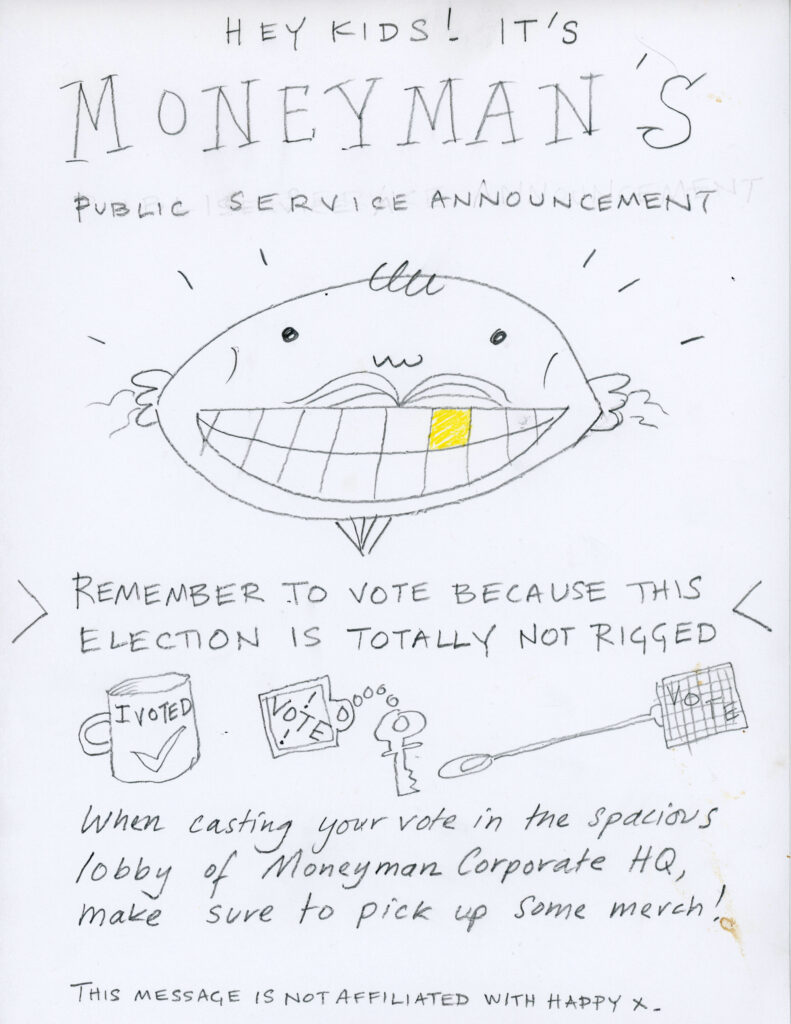 HEY KIDS! IT'S
MONEYMAN'S
PUBLIC SERVICE ANNOUNCEMENT
REMEMBER TO VOTE BECAUSE THIS
ELECTION IS TOTALLY NOT RIGGED
I VOTED
VOTE!!
VOTE
When casting your vote in the spacious
lobby of Moneyman Corporate HQ,
make sure to pick up some merch!
THIS MESSAGE IS NOT AFFILIATED WITH HAPPY X.